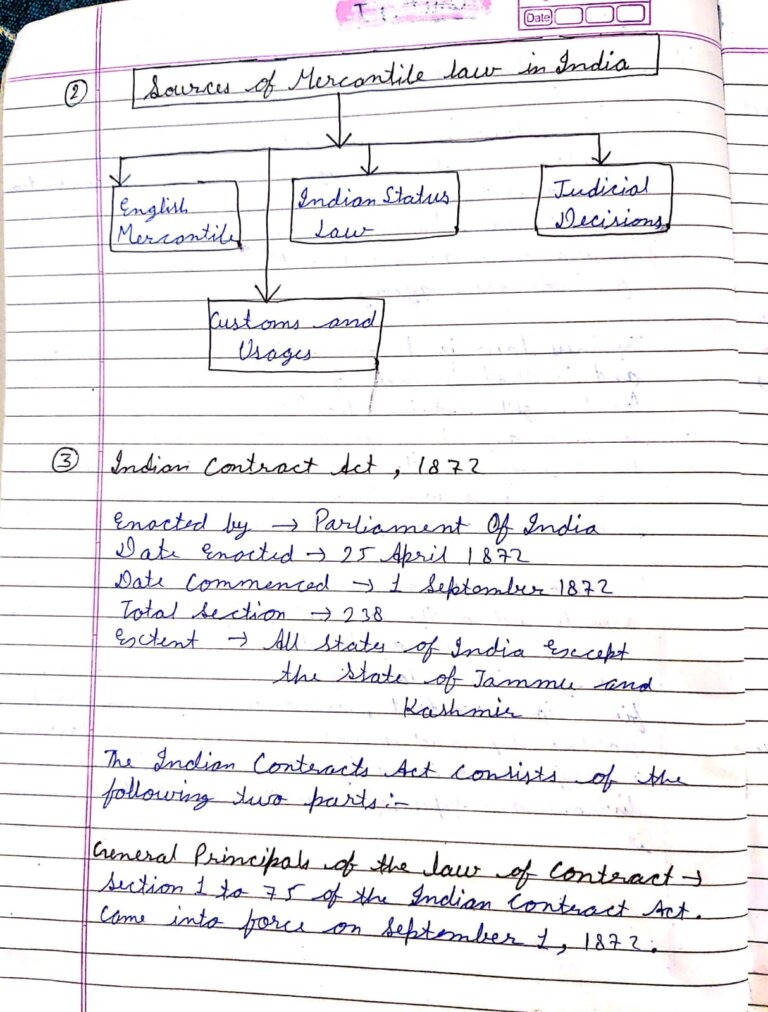 Date
② Sources of Mercantile law in India
English
Mercantile
Indian Status
Law
Judicial
Decisions
Customs and
Usages
③ Indian Contract Act, 1872
Enacted by → Parliament Of India
Date Enacted → 25 April 1872
Date Commenced → 1 September 1872
Total Section → 238
Esctent → All States of India Except
the State of Jammu and
Kashmir
The Indian Contracts Act consists of the
following two parts:-
General Principals of the law of Contract →
Section 1 to 75 of the Indian Contract Act.
Came into force on September 1, 1872.